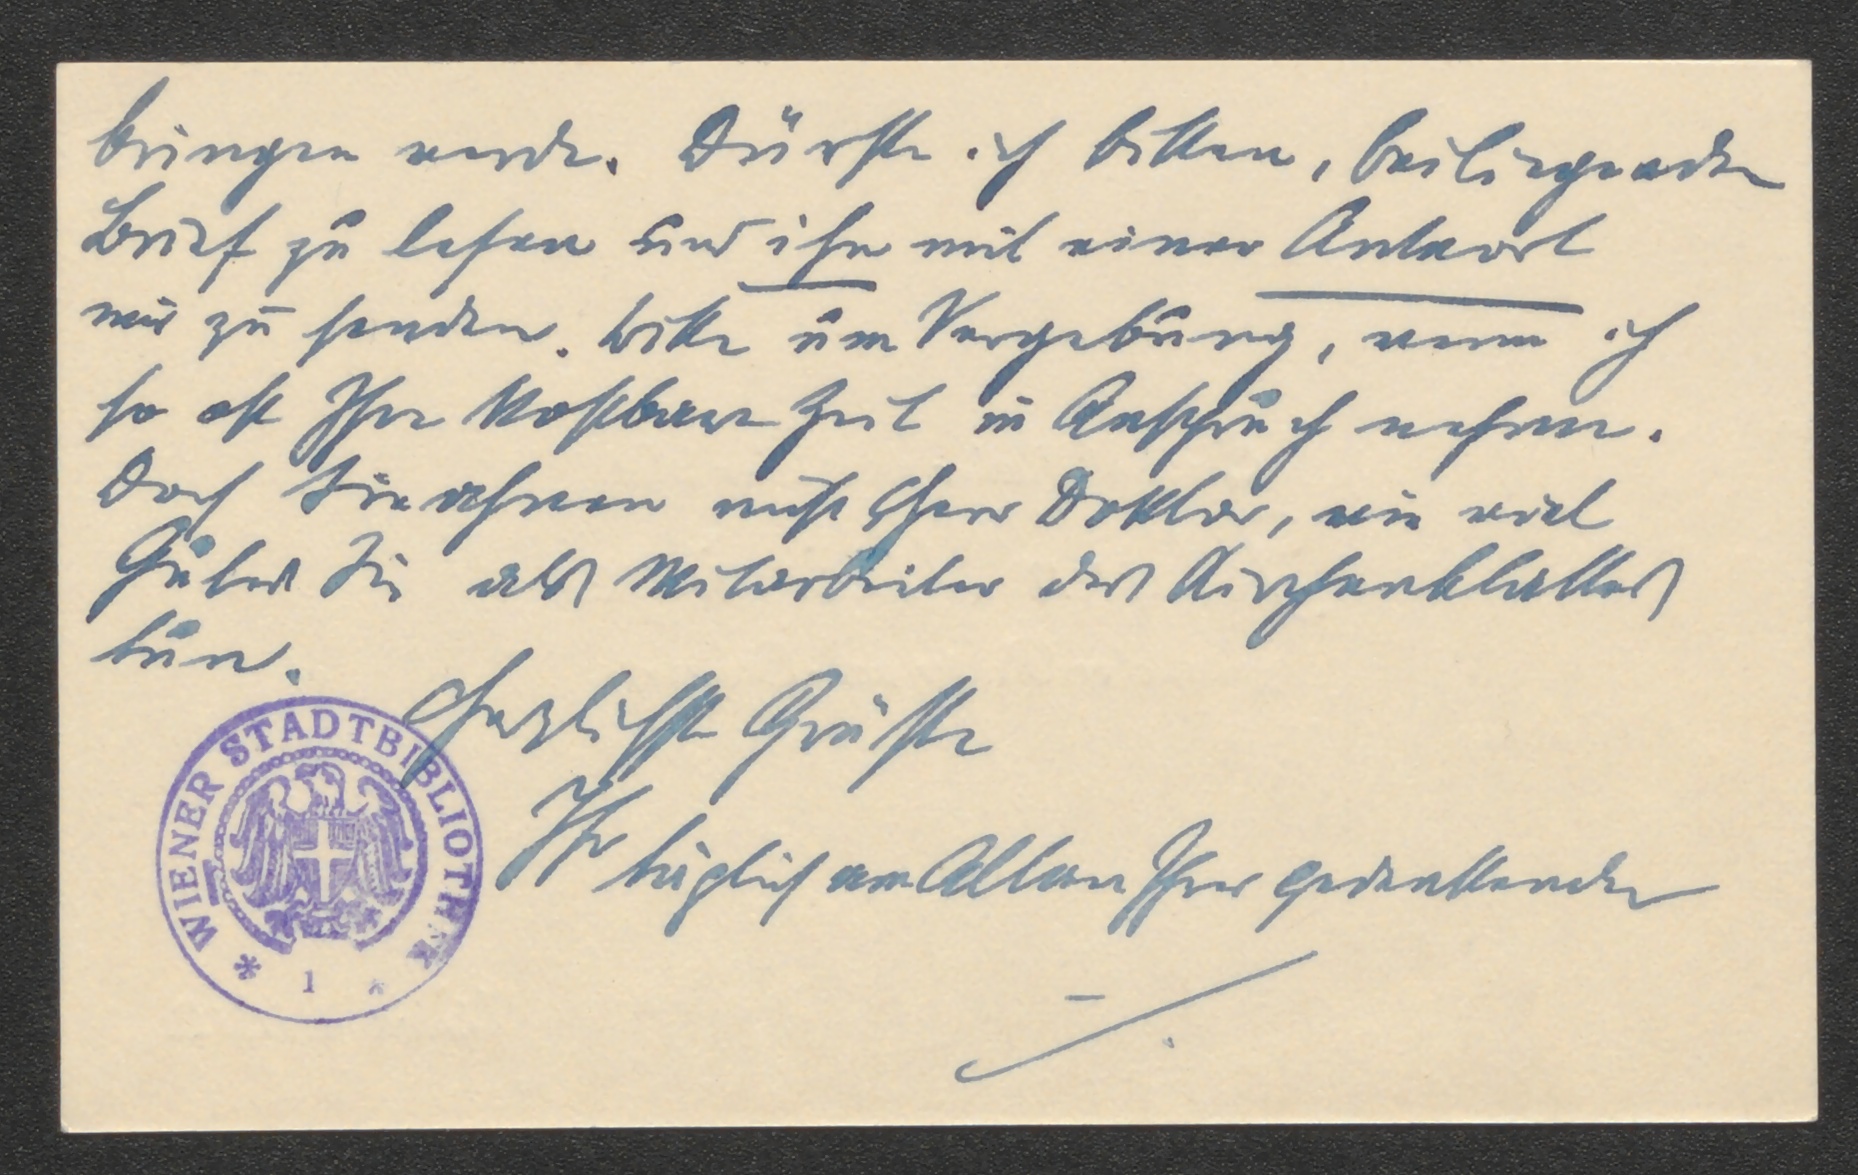 bringen werde. Dürfte ich bitten, beiliegenden
Brief zu lesen und ihn mit einer Antwort
mir zu senden. Bitte um Vergebung, wenn ich
so oft Ihre kostbare Zeit in Anspruch nehme.
Doch Sie ahnen nicht Herr Doktor, wie viel
Gutes Sie als Mitarbeiter des Kirchenblattes
tun.
Herzlichste Grüße
Ihr täglich am Altare Ihrer gedenkender
WIENER STADTBIBLIOTHEK
* 1 *